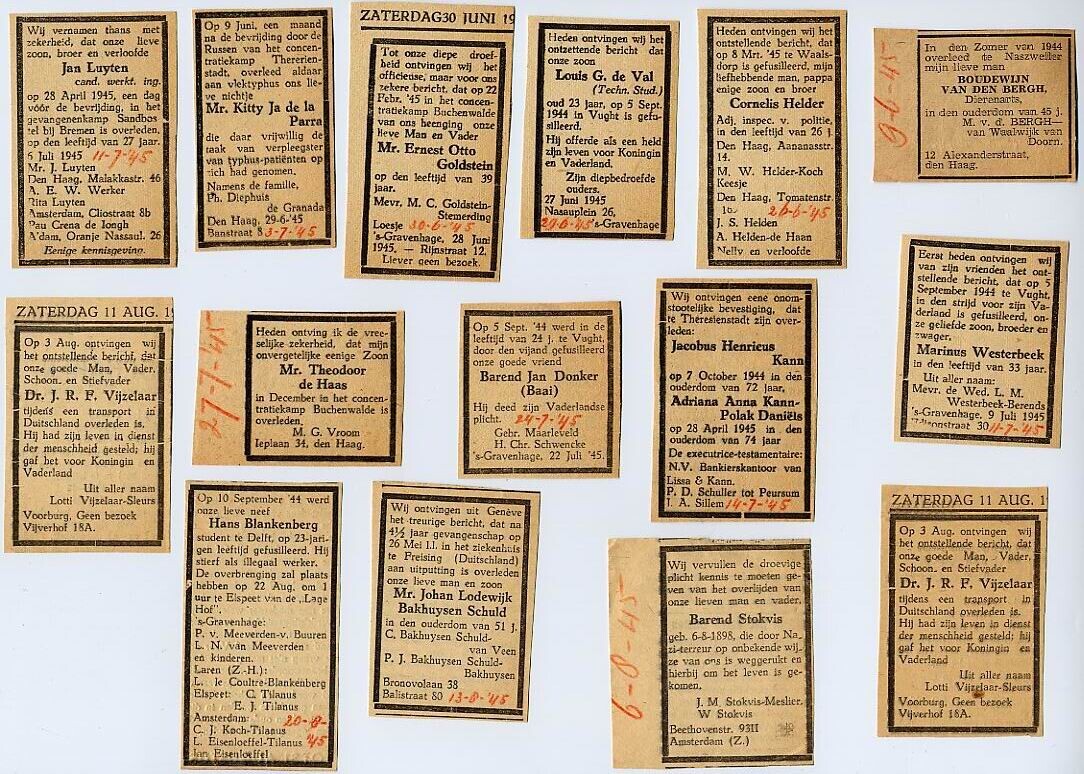 Wij vernamen thans met
zekerheid, dat onze lieve
zoon, broer en verloofde
Jan Luyten
cand. werkt. ing.
op 28 April 1945, een dag
vóór de bevrijding, in het
gevangenenkamp Sandbos
tel bij Bremen is overleden,
in den leeftijd van 27 jaar.
6 Juli 1945 11-7-'45
Mr. J. Luyten
Den Haag, Malakkastr. 46
A. E. W. Werker
Rita Luyten
Amsterdam, Cliostraat 8b
Pau Crena de Iongh
A'dam, Oranje Nassaul. 26
Eenige kennisgeving.
Op 9 Juni, een maand
na de bevrijding door de
Russen van het concen-
tratiekamp Thererien-
stadt, overleed aldaar
aan vlektyphus ons lie-
ve nichtje
Mr. Kitty Ja de la
Parra
die daar vrijwillig de
taak van verpleegster
van typhus-patiënten op
zich had genomen.
Namens de familie,
Ph. Diephuis
de Granada
Den Haag, 29-6-'45
Banstraat 8 3-7-'45
ZATERDAG 30 JUNI 19
Tot onze diepe droef-
heid ontvingen wij het
officieuse, maar voor ons
zekere bericht, dat op 22
Febr. '45 in het concen-
tratiekamp Buchenwalde
van ons heenging onze
lieve Man en Vader
Mr. Ernest Otto
Goldstein
op den leeftijd van 39
jaar.
Mevr. M. C. Goldstein-
Stemerding
Loesje 30-6-'45
's-Gravenhage, 28 Juni
1945. — Rijnstraat 12.
Liever geen bezoek.
Heden ontvingen wij het
ontzettende bericht dat
onze zoon
Louis G. de Val
(Techn. Stud.)
oud 23 jaar, op 5 Sept.
1944 in Vught is gefu-
silleerd.
Hij offerde als een held
zijn leven voor Koningin
en Vaderland.
Zijn diepbedroefde
ouders.
27 Juni 1945
Nasauplein 26,
27-6-'45 's-Gravenhage
Heden ontvingen wij het
ontstellende bericht, dat
op 8 Mrt. '45 te Waals-
dorp is gefusilleerd, mijn
liefhebbende man, pappa
eenige zoon en broer
Cornelis Helder
Adj. inspec. v. politie,
in den leeftijd van 26 j.
Den Haag, Aananasstr.
14.
M. W. Helder-Koch
Keesje
Den Haag, Tomatenstr.
26-6-'45
J. S. Helden
A. Helden-de Haan
Nelly en verloofde
9-6-45-
In den Zomer van 1944
overleed te Naszweiler
mijn lieve man
BOUDEWIJN
VAN DEN BERGH,
Dierenarts,
in den ouderdom van 45 j.
M. v. d. BERGH—
van Waalwijk van
Doorn.
12 Alexanderstraat,
den Haag.
ZATERDAG 11 AUG. 1
Op 3 Aug. ontvingen wij
het ontstellende bericht, dat
onze goede Man, Vader,
Schoon. en Stiefvader
Dr. J. R. F. Vijzelaar
tijdens een transport in
Duitschland overleden is.
Hij had zijn leven in dienst
der menschheid gesteld; hij
gaf het voor Koningin en
Vaderland
Uit aller naam
Lotti Vijzelaar-Sleurs
Voorburg, Geen bezoek
Vijverhof 18A.
27-7-'45-
Heden ontving ik de vree-
selijke zekerheid, dat mijn
onvergetelijke eenige Zoon
Mr. Theodoor
de Haas
in December in het concen-
tratiekamp Buchenwalde is
overleden.
M. G. Vroom
Ieplaan 34, den Haag.
Op 5 Sept. '44 werd in de
leeftijd van 24 j. te Vught,
door den vijand gefusilleerd
onze goede vriend
Barend Jan Donker
(Baai)
Hij deed zijn Vaderlandse
plicht. 24-7-'45
Gebr. Maarleveld
H. Chr. Schwencke
's-Gravenhage, 22 Juli '45.
Wij ontvingen eene onom-
stootelijke bevestiging, dat
te Theresienstadt zijn over-
leden:
Jacobus Henricus
Kann
op 7 October 1944 in den
ouderdom van 72 jaar,
Adriana Anna Kann-
Polak Daniëls
op 28 April 1945 in den
ouderdom van 74 jaar
De executrice-testamentaire:
N.V. Bankierskantoor van
Lissa & Kann.
P. D. Schuller tot Peursum
J. A. Sillem 14-7-'45
Eerst heden ontvingen wij
van zijn vrienden het ont-
stellende bericht, dat op 5
September 1944 te Vught,
in den strijd voor zijn Va-
derland is gefusilleerd, on-
ze geliefde zoon, broeder en
zwager.
Marinus Westerbeek
in den leeftijd van 33 jaar.
Uit aller naam:
Mevr. de Wed. L. M.
Westerbeek-Berends
's-Gravenhage, 9 Juli 1945
30 11-7-'45
Op 10 September '44 werd
onze lieve neef
Hans Blankenberg
student te Delft, op 23-jari-
gen leeftijd gefusilleerd. Hij
stierf als illegaal werker.
De overbrenging zal plaats
hebben op 22 Aug, om 1
uur te Elspeet van de „Lage
Hof".
's-Gravenhage:
P. v. Meeverden-v. Buuren
L. N. van Meeverden
en kinderen.
Laren (Z.-H.):
L. le Coultre-Blankenberg
Elspeet: C. Tilanus
E. J. Tilanus
Amsterdam: 20-8-
C. J. Koch-Tilanus
L. Eisenloeffel-Tilanus '45
Jan Eisenloeffel
Wij ontvingen uit Genève
het treurige bericht, dat na
4½ jaar gevangenschap op
26 Mei l.l. in het ziekenhuis
te Preising (Duitschland)
aan uitputting is overleden
onze lieve man en zoon
Mr. Johan Lodewijk
Bakhuysen Schuld
in den ouderdom van 51 j.
C. Bakhuysen Schuld-
van Veen
P. J. Bakhuysen Schuld-
Bakhuysen
Bronovolaan 38
Balistraat 80 13-8-'45
6-8-45-
Wij vervullen de droevige
plicht kennis te moeten ge-
ven van het overlijden van
onze lieven man en vader,
Barend Stokvis
geb. 6-8-1898, die door Na-
zi-terreur op onbekende wij-
ze van ons is weggerukt en
hierbij om het leven is ge-
komen.
J. M. Stokvis-Meslier.
W Stokvis
Beethovenstr. 93II
Amsterdam (Z.)
ZATERDAG 11 AUG. 1
Op 3 Aug. ontvingen wij
het ontstellende bericht, dat
onze goede Man, Vader,
Schoon. en Stiefvader
Dr. J. R. F. Vijzelaar
tijdens een transport in
Duitschland overleden is.
Hij had zijn leven in dienst
der menschheid gesteld; hij
gaf het voor Koningin en
Vaderland
Uit aller naam
Lotti Vijzelaar-Sleurs
Voorburg, Geen bezoek
Vijverhof 18A.